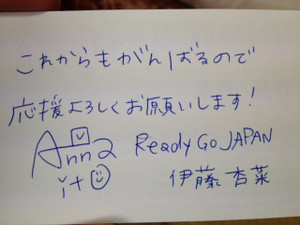 これからもがんばるので
応援よろしくお願いします!
Anna Ready Go JAPAN
ito 伊藤 杏菜